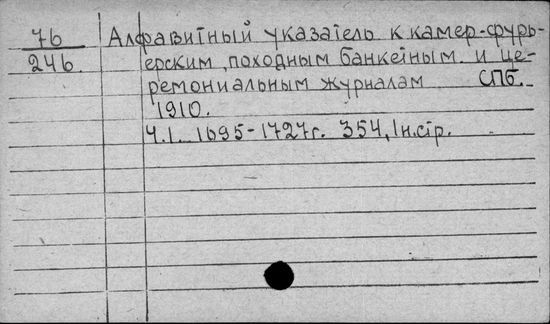 76
246.
Алфавитный указатель к камер-фурь-
ерским, походным банкетным и це-
ремониальным журналам СПб.
1910.
Ч.I. 1695-1727г. 354, Iн.стр.